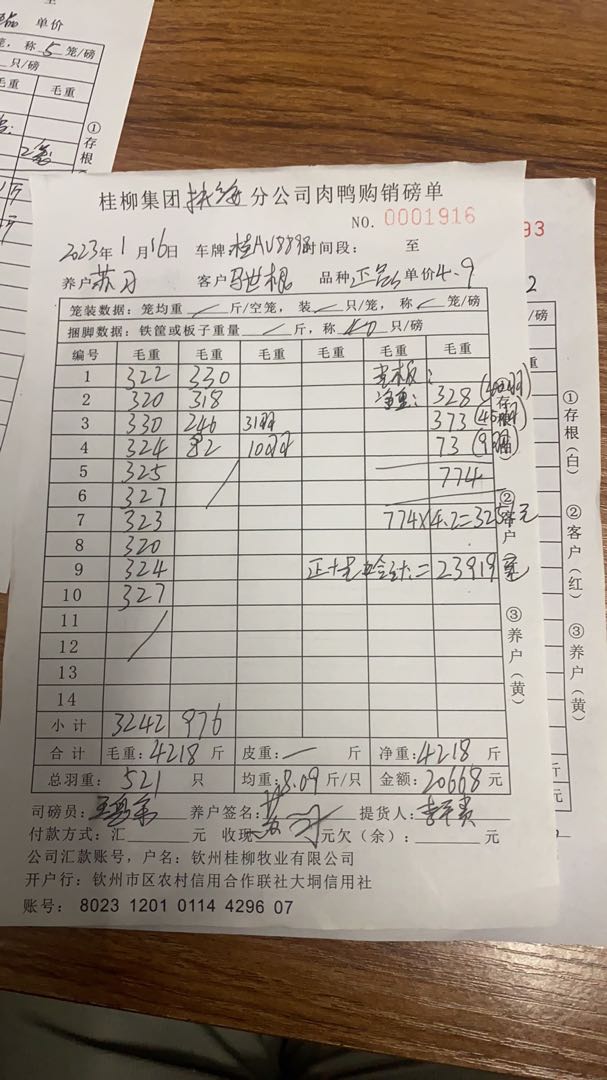 单价
称5笼/磅
只/磅
毛重 毛重
①存根
93
2
桂柳集团扶绥分公司肉鸭购销磅单
NO. 0001916
2023年1月16日 车牌桂AU889 时间段: 至
养户苏 客户马世根 品种正品 单价4.9
笼装数据: 笼均重 斤/空笼, 装 只/笼, 称 笼/磅
捆脚数据: 铁筐或板子重量 斤, 称40只/磅
编号 毛重 毛重 毛重 毛重 毛重 毛重
1 322 330 老板:
2 320 318 净重: 328
3 330 246 31羽 373
4 324 82 10羽 73
5 325 774
6 327
7 323 774×4.2=3251元
8 320
9 324 合计:=23919
10 327
11
12
13
14
小计 3242 976
合计 毛重:4218斤 皮重: 斤 净重:4218斤
总羽重: 521 只 均重:8.09斤/只 金额:20668元
司磅员: 养户签名: 提货人:
付款方式: 汇 元 收现 元 欠(余): 元
公司汇款账号, 户名: 钦州桂柳牧业有限公司
开户行: 钦州市区农村信用合作联社大垌信用社
账号: 8023 1201 0114 4296 07
①存根 ②客户 ③养户(黄)
笼/磅
毛重
①存根(白) ②客户(红) ③养户(黄)
斤
元